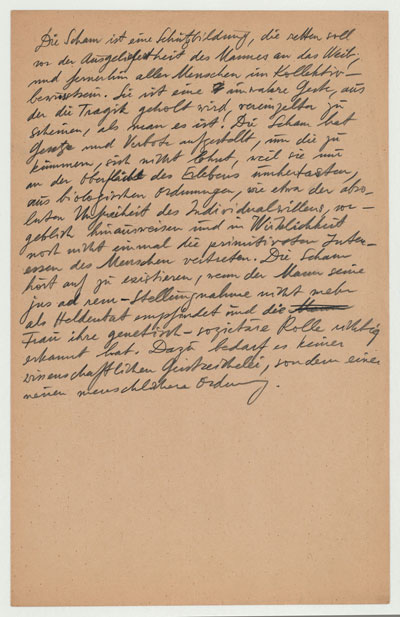 Die Scham ist eine Schutzbildung, die retten soll
vor der Ausgeliefertheit des Mannes an das Weib,
und fernerhin aller Menschen im Kollektiv-
bewusstsein. Sie ist eine Geste, aus
der die Tragik geholt wird, vereinzelter zu
scheinen, als man es ist! Die Scham hat
Gesetze und Verbote aufgestellt, um die zu
kümmern, sich nicht lohnt, weil sie nur
an der Oberfläche des Erlebens umhertasten,
aus biologischen Ordnungen, wie etwa der abso-
luten Unfreiheit des Individualwillens, vor-
geblich hinausweisen und in Wirklichkeit
noch nicht einmal die primitivsten Inter-
essen des Menschen vertreten. Die Scham
hört auf zu existieren, wenn der Mann seine
jus ad rem-Stellungnahme nicht mehr
als Heldentat empfindet und die
Frau ihre genetisch-sozietäre Rolle richtig
erkannt hat. Dazu bedarf es keiner
wissenschaftlichen, sondern einer
neuen menschlichen Ordnung.